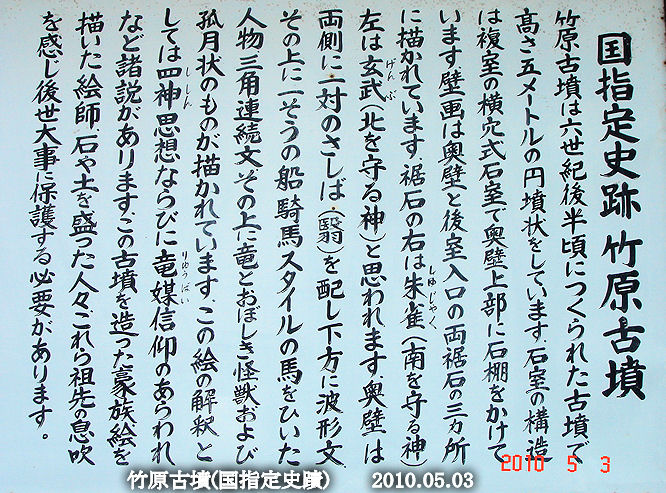 国指定史跡 竹原古墳
竹原古墳は六世紀後半頃につくられた古墳で
高さ五メートルの円墳状をしています、石室の構造
は複室の横穴式石室で奥壁上部に石棚をかけて
います壁画は奥壁と後室入口の両裾石の三ヵ所
に描かれています、裾石の右は朱雀(南を守る神)
しゅじゃく
左は玄武(北を守る神)と思われます、奥壁は
げんぶ
両側に一対のさしば(翳)を配し下方に波形文、
その上に一そうの船、騎馬スタイルの馬をひいた
人物三角連続文、その上に竜とおぼしき怪獣および
弧月状のものが描かれています、この絵の解釈と
しては四神思想ならびに竜媒信仰のあらわれ
ししん
りゅうばい
など諸説があります、この古墳を造った豪族絵を
描いた絵師、石や土を盛った人々これら祖先の息吹
を感じ後世大事に保護する必要があります。
2010 5 3
竹原古墳(国指定史蹟) 2010.05.03